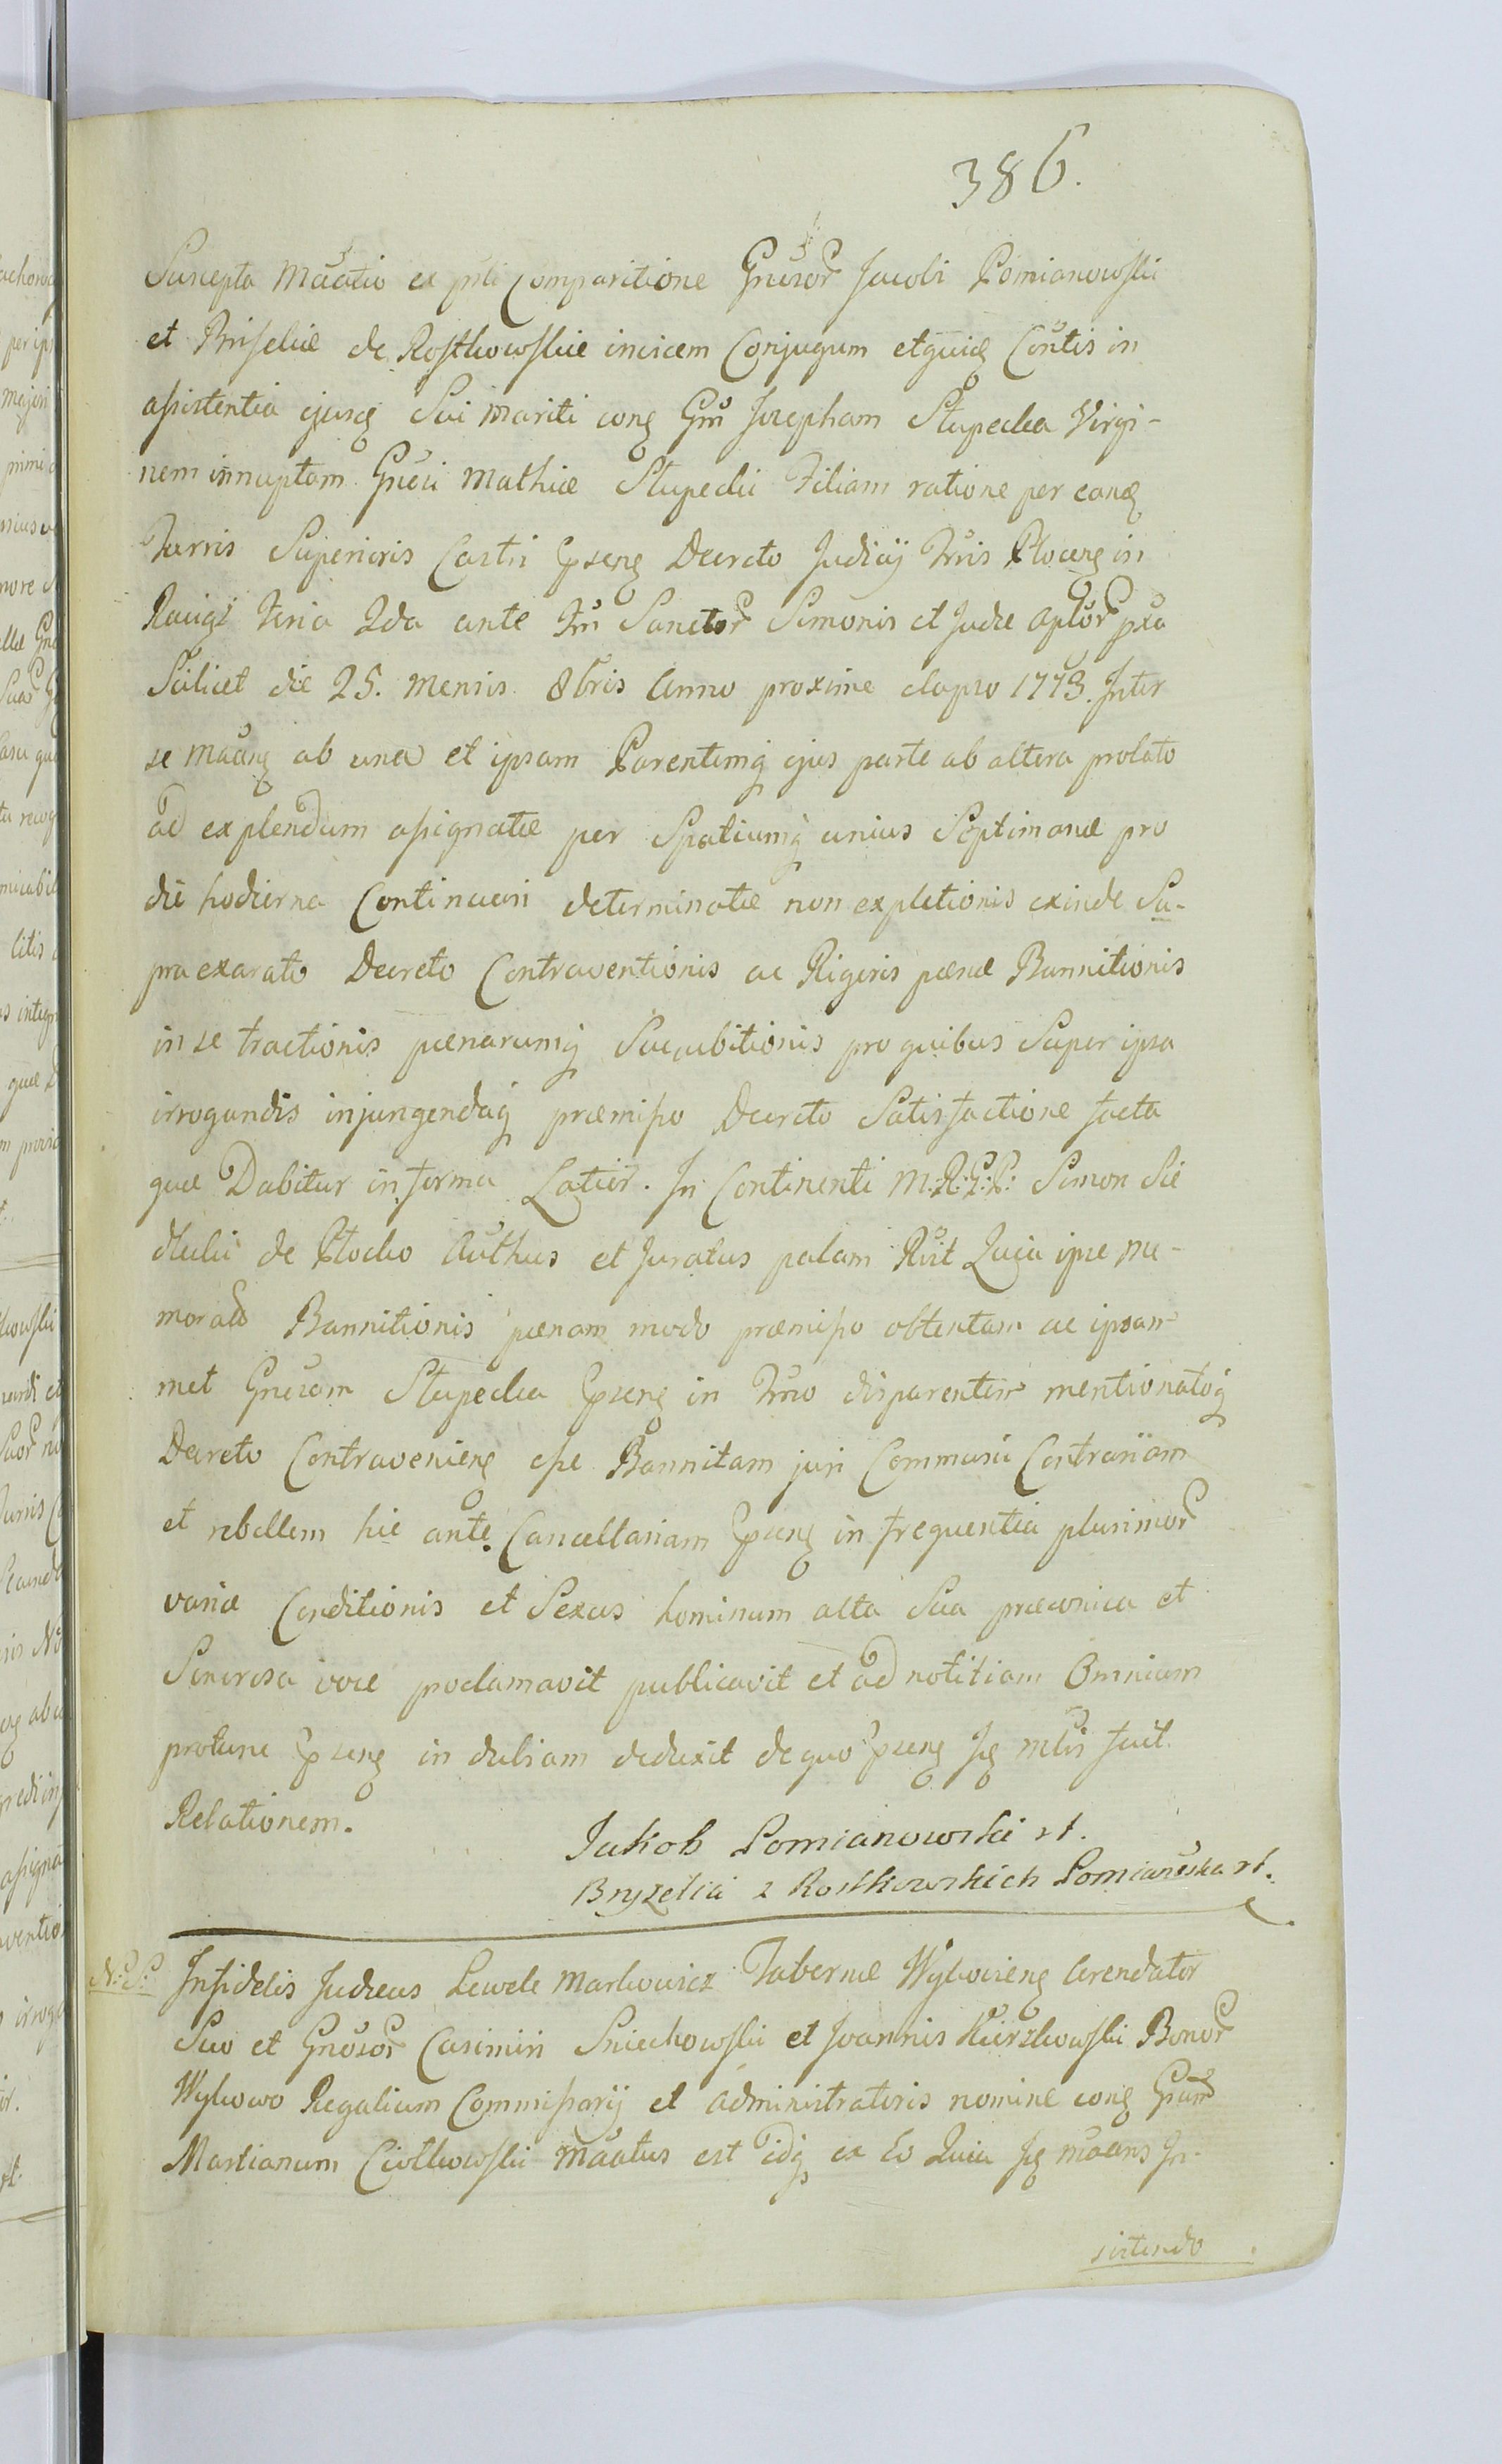 386.
Suscepta Mãatio ex pñti Comparitione Gñrosor Jacobi Pomianowski
et Briseliæ de Rostkowskie invicem Conjugum et quidẽ Cõntis in
assistentia ejusq Sui mariti conq Gm Josepham Slupecka Virgi-
nem innuptam Gñosi Mathiæ Slupecki Filiam ratione per eanq
Turris Superioris Castri Ppsenq Decreto Judicij Tñris Plocenq in
Raciąż Feria 2da ante Fm Sanctor Simonis et Judæ Aplor pxa
Scilicet die 25. Mensis 8bris Anno proxime elapso 1773. Inter
se Mãanq ab una et ipsam Parentemq ejus parte ab altera prolato
ad explendum assignatæ per Spatiumq unius Septimanæ pro
die hodierna Continuari determinatæ non expletionis exinde Su-
pra exarato Decreto Contraventionis ac Rigoris pænæ Bannitionis
in se tractionis pænarumq Succubitionis pro quibus Super ipsa
irrogandis injungendaq præmisso Decreto Satisfactione facta
quæ Dabitur in forma Latior. In Continenti M:R:G:R: Simon Sie
dlecki de Płocko Authus et Juratus palam Rũit Quia ipse me-
morato Bannitionis pænam modo præmisso obtentam ac ipsam-
met Gnosam Slupecka Ppsenq in Tñno disparentem mentionatoq
Decreto Contravenienq esse Bannitam juri Communi Contrariam
et rebellem hic ante Cancellariam Ppsenq in frequentia plurimor
variæ Conditionis et Sexus hominum alta Sua præconica et
Sonorosa voce proclamavit publicavit et ad notitiam Omnium
protunc Ppsenq in dubiam deduxit de quo Ppsenq Jq mlis fecit
Relationem.
Jakob Pomianowski rt.
Bryzelia z Rostkowskich Pomianoska rt.
N:S: Infidelis Judæus Lewek Markowicz Tabernæ Wykowienq Arendator
Suo et Gnosor Casimiri Sniechowski et Joannis Kurzkowski Bonor
Wykowo Regalium Commissarij et Administratoris nomine conq Gnum
Martianum Ciołkowski Mãatus est idq ex Eo Quia Jq mãans In-
sistendo